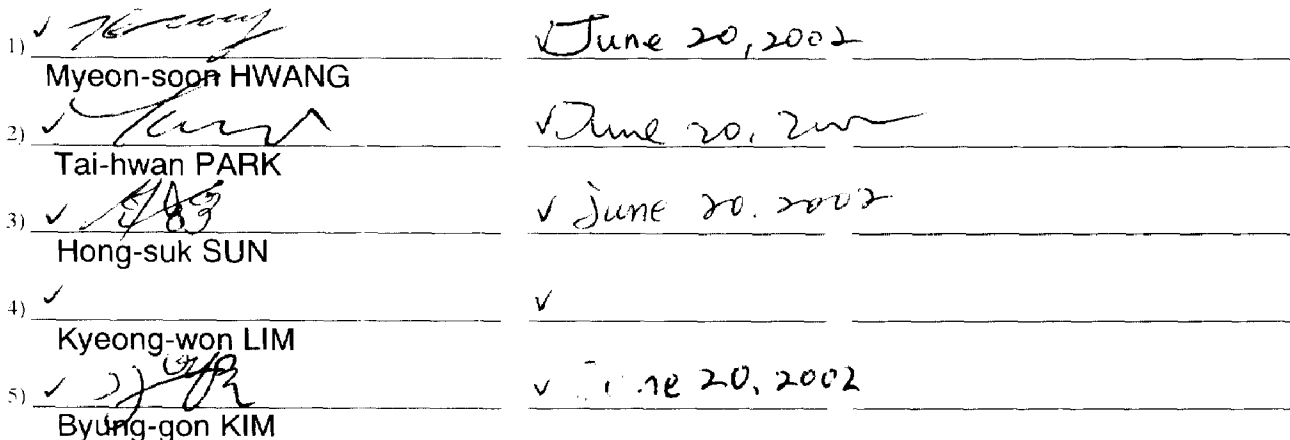 1) ✓ ✓ June 20, 2002
Myeon-soon HWANG
2) ✓ ✓ June 20,
Tai-hwan PARK
3) ✓ ✓ June 20. 2002
Hong-suk SUN
4) ✓ ✓
Kyeong-won LIM
5) ✓ ✓ 20, 2002
Byung-gon KIM